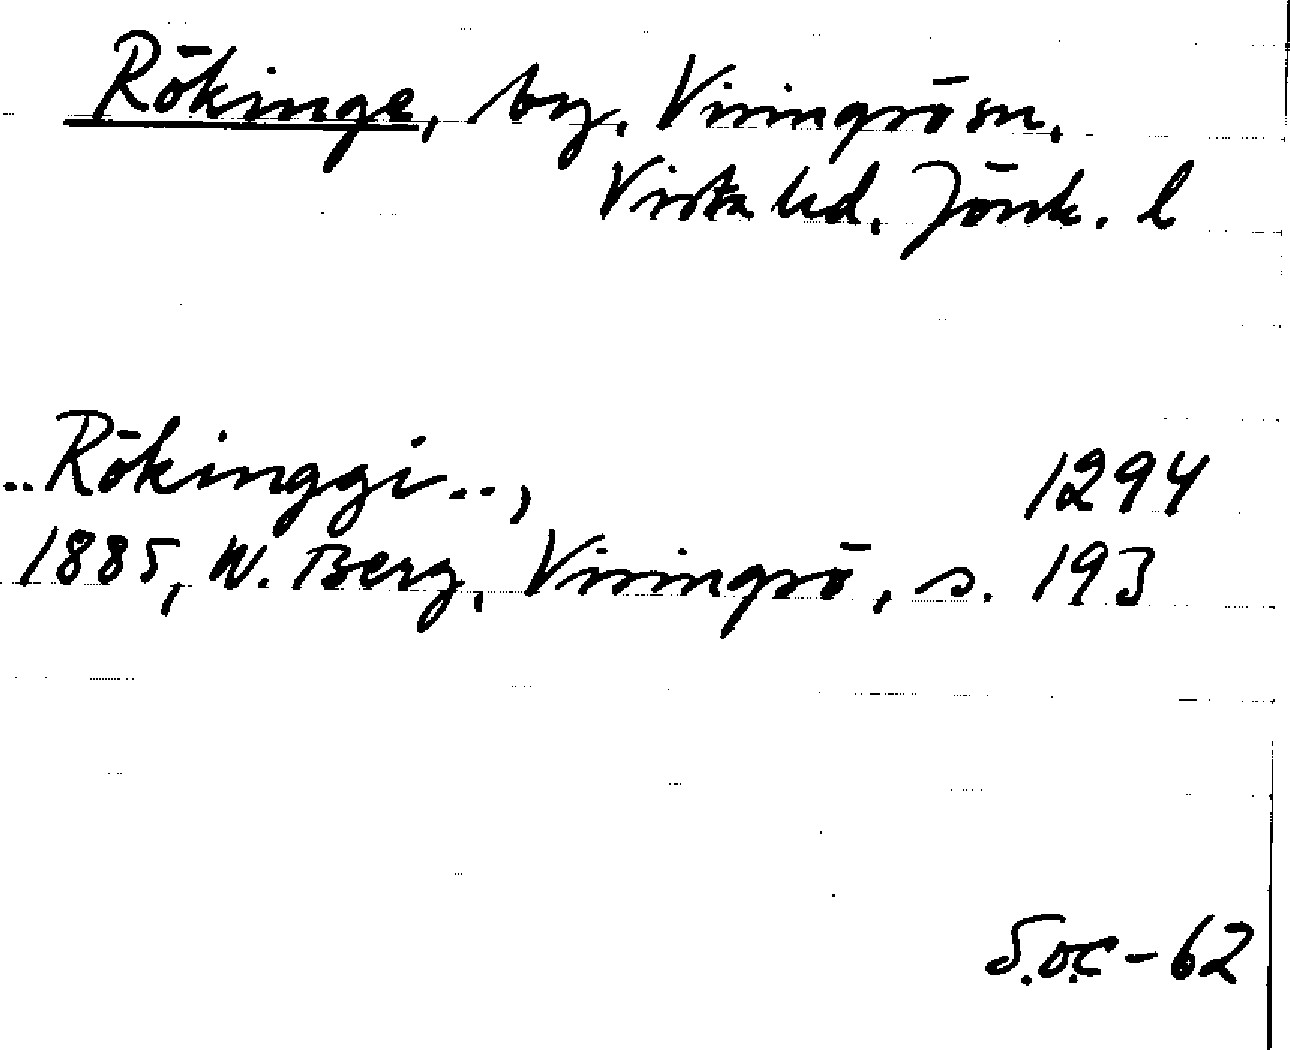 Rökinge, by, Visingsö sn,
Vista hd, Jönk. l
..Rökinggi.., 1294
1885, W. Berg, Visingsö, s. 193
S.o.C-62